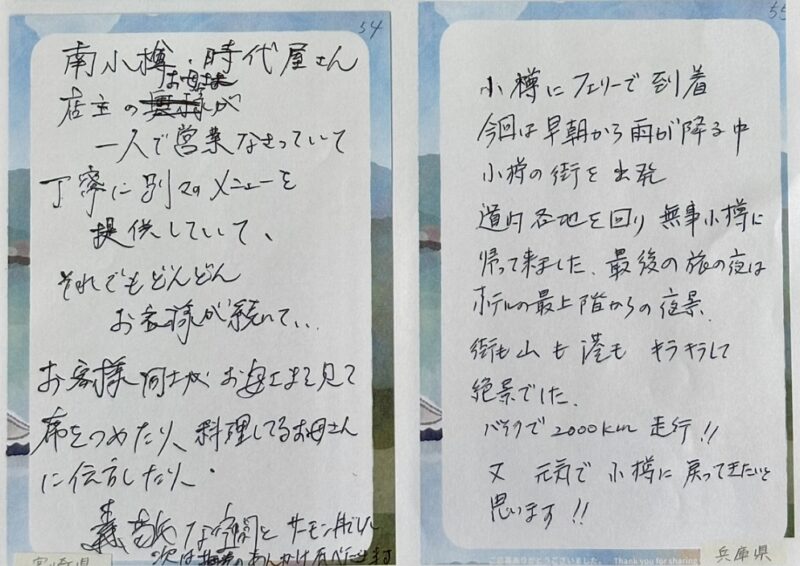 54
南小樽・時代屋さん
お母さま
店主の が
一人で営業なさっていて
丁寧に別々のメニューを
提供していて、
それでもどんどん
お客様が続いて...
お客様同士が お母さまを見て
席をつめたり、料理してるお母さん
に伝言したり、
な空間と サーモン
次は のあんかけ 食べたきます
宮崎県
55
小樽にフェリーで到着
今回は早朝から雨が降る中
小樽の街を出発
道内各地を回り無事小樽に
帰って来ました。最後の旅の夜は
ホテルの最上階からの夜景。
街も山も港もキラキラして
絶景でした。
バイクで2000km 走行!!
又 元気で 小樽に戻ってきたいと
思います!!
ご応募ありがとうございました。 Thank you for sharing
兵庫県